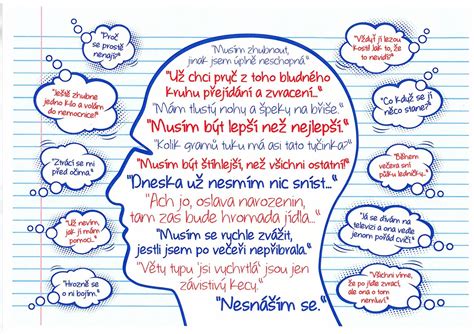 "Proč
se prostě
nenají?"
"Ještě zhubne
jedno kilo a volám
do nemocnice!"
"Ztrácí se mi
před očima."
"Už nevím,
jak jí mám
pomoci..."
"Hrozně se
o ni bojím."
"Musím zhubnout,
jinak jsem úplně neschopná."
"Už chci pryč z toho bludného
kruhu přejídání a zvracení..."
"Mám tlustý nohy a špeky na břiše."
"Musím být lepší než nejlepší."
"Kolik gramů tuku má asi tato tyčinka?"
"Musím být štíhlejší, než všichni ostatní!"
"Dneska už nesmím nic sníst..."
"Ach jo, oslava narozenin,
tam zas bude hromada jídla..."
"Musím se rychle zvážit,
jestli jsem po večeři nepřibrala."
"Věty typu 'jsi vychrtlá' jsou jen
závistivý kecy."
"Nesnáším se."
"Vždyť jí lezou
kosti! Jak to, že
to nevidí?"
"Co když se jí
něco stane?"
"Během
večera sní
půlku ledničky."
"Já se dívám na
televizi a ona vedle
jenom pořád cvičí."
"Všichni víme,
že po jídle zvrací,
ale ona o tom
nemluví."